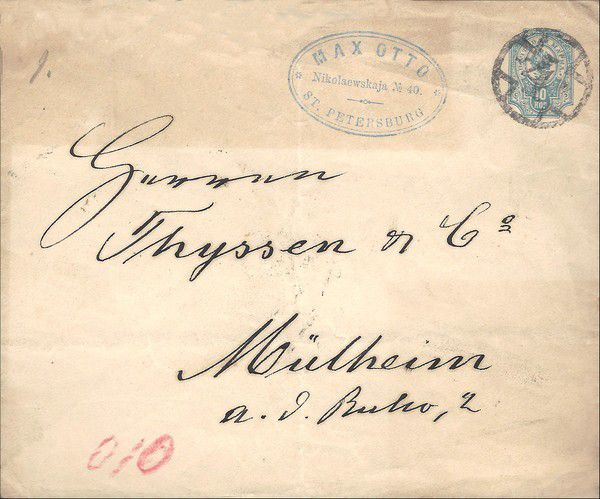 1.
MAX OTTO
Nikolaewskaja № 40.
ST. PETERSBURG
10
КОП
Herren
Thyssen & Co
Mülheim
a. d. Ruhr,
010